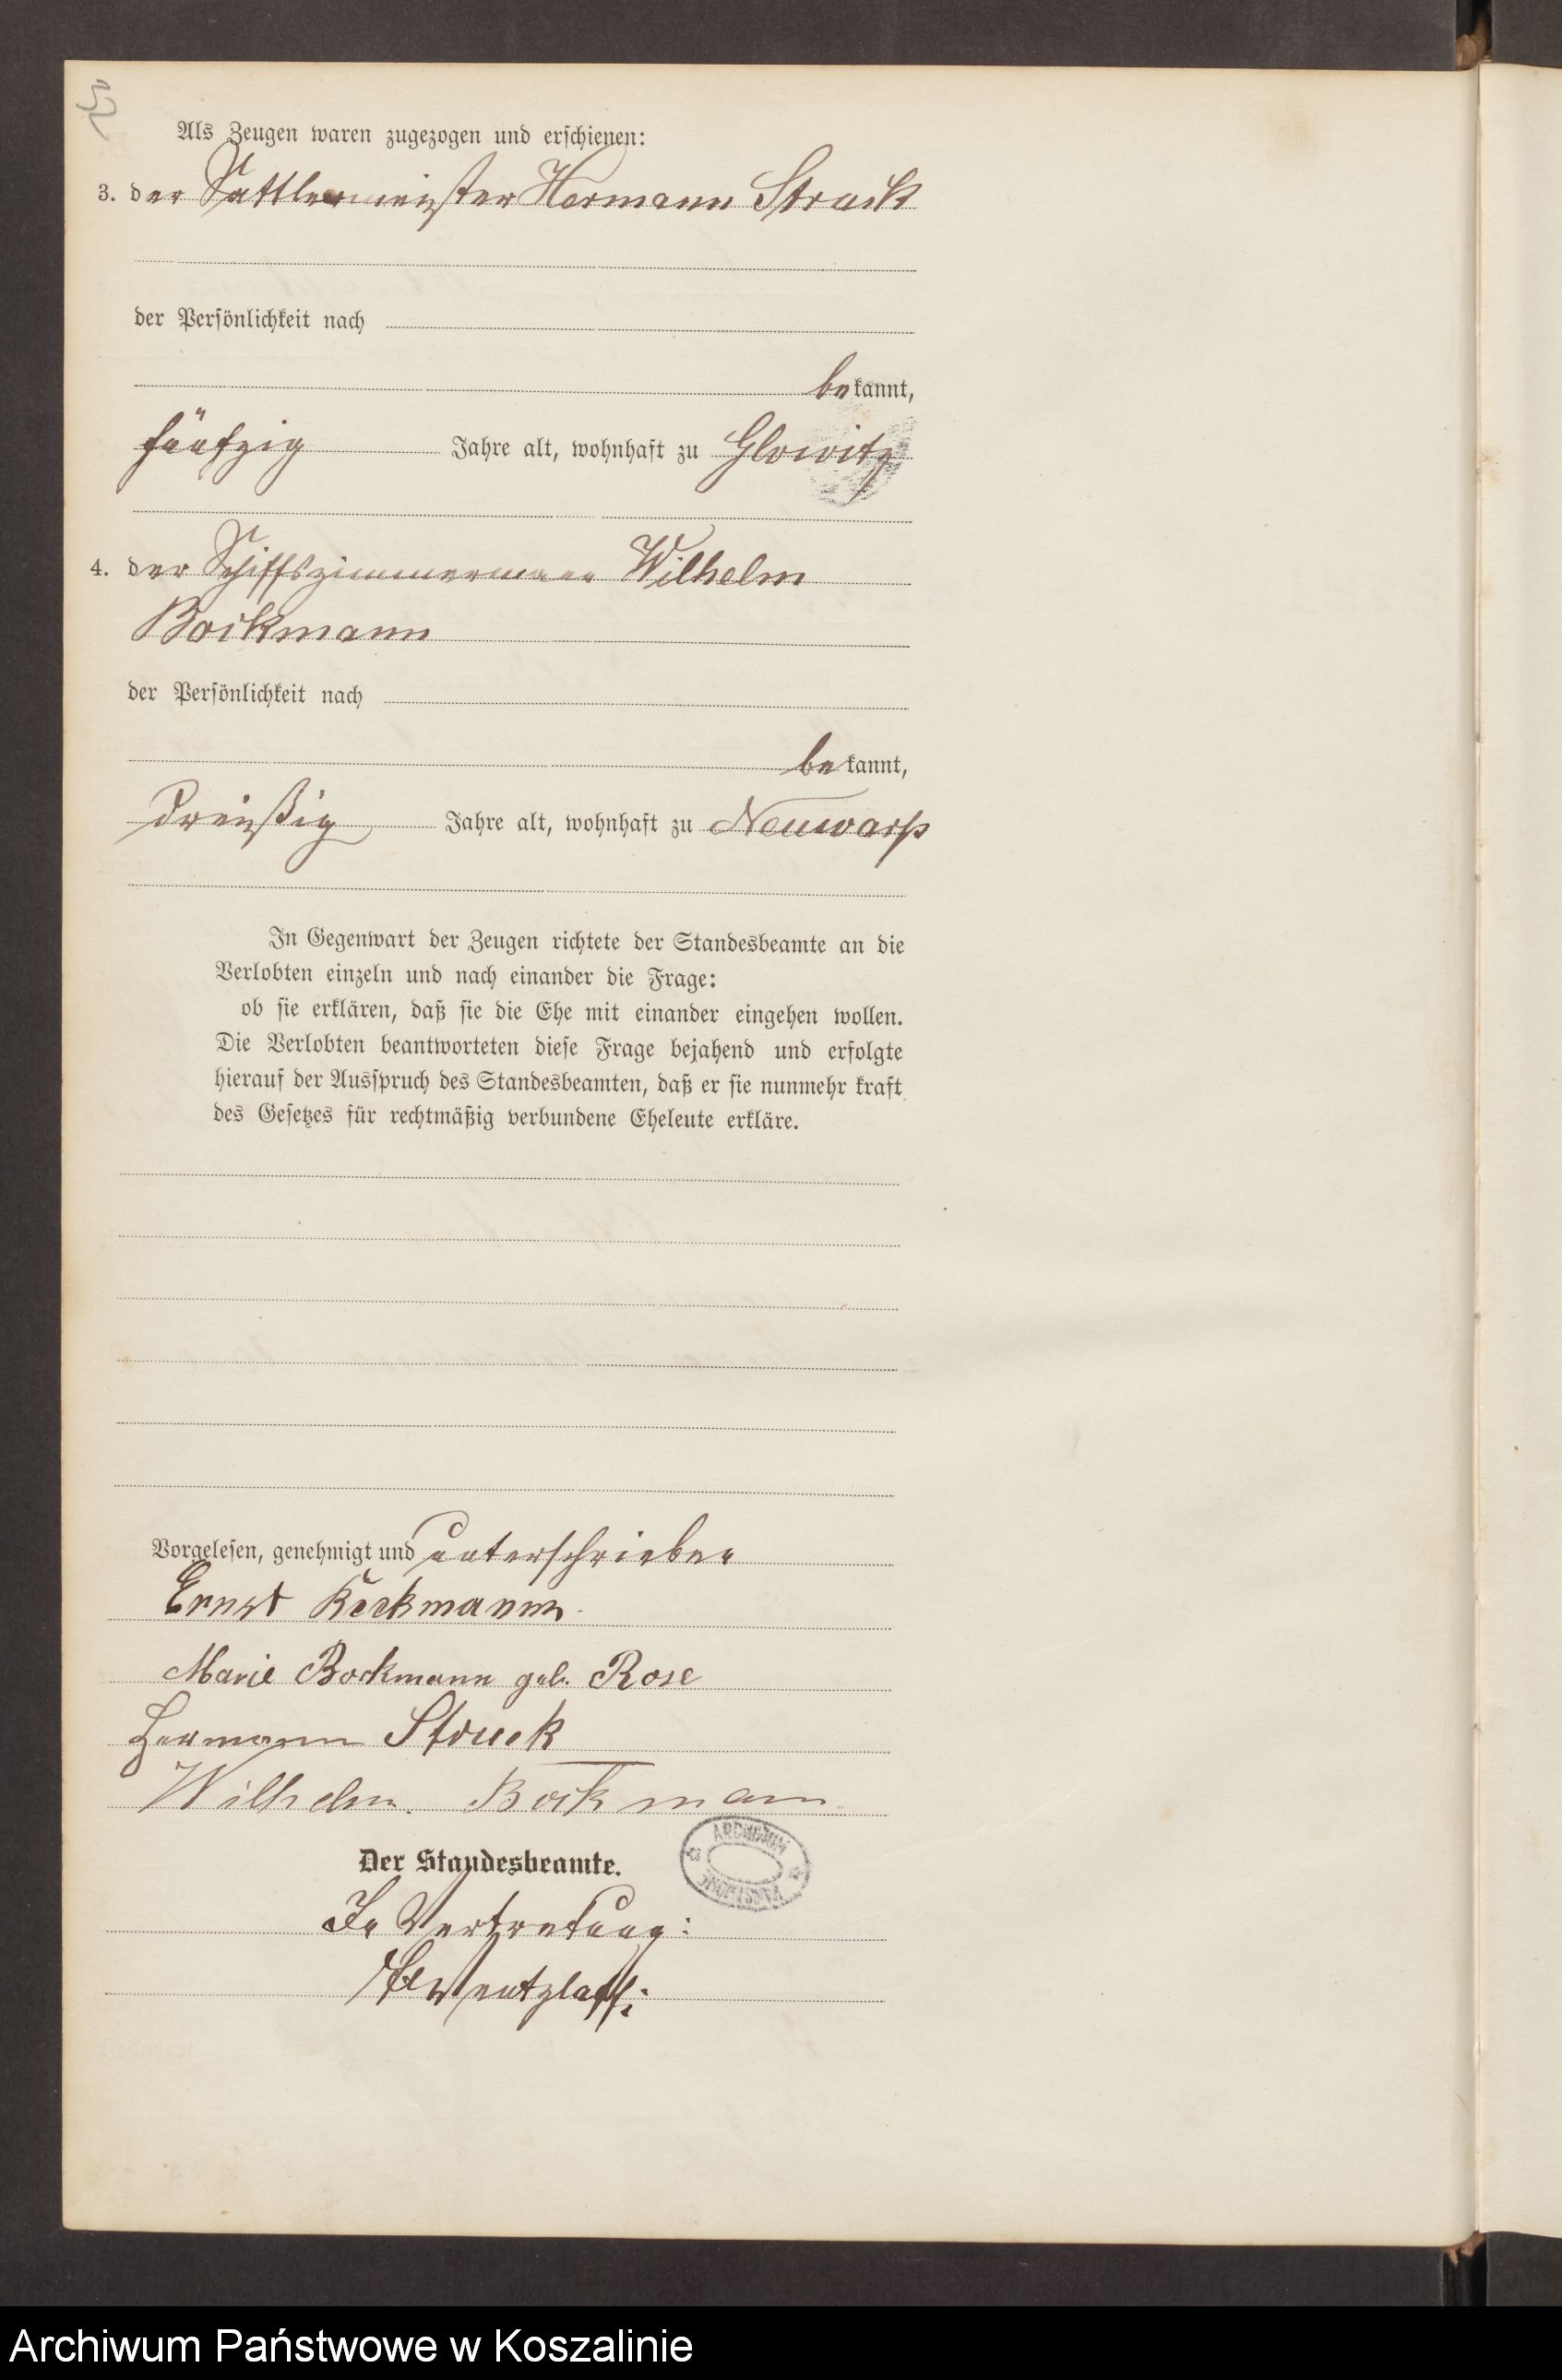 Als Zeugen waren zugezogen und erschienen:
3. der Sattlermeister Hermann Struck
der Persönlichkeit nach
bekannt,
fünfzig Jahre alt, wohnhaft zu Glowitz
4. der Schiffszimmermann Wilhelm
Bockmann
der Persönlichkeit nach
bekannt,
dreißig Jahre alt, wohnhaft zu Neuwarp
In Gegenwart der Zeugen richtete der Standesbeamte an die
Verlobten einzeln und nach einander die Frage:
ob sie erklären, daß sie die Ehe mit einander eingehen wollen.
Die Verlobten beantworteten diese Frage bejahend und erfolgte
hierauf der Ausspruch des Standesbeamten, daß er sie nunmehr kraft
des Gesetzes für rechtmäßig verbundene Eheleute erkläre.
Vorgelesen, genehmigt und unterschrieben
Ernst Bockmann.
Marie Bockmann geb. Rose
Hermann Struck
Wilhelm. Bockmann.
Der Standesbeamte.
ARCHIWUM
PAŃSTWOWE
In Vertretung:
Wentzlaff:
Archiwum Państwowe w Koszalinie